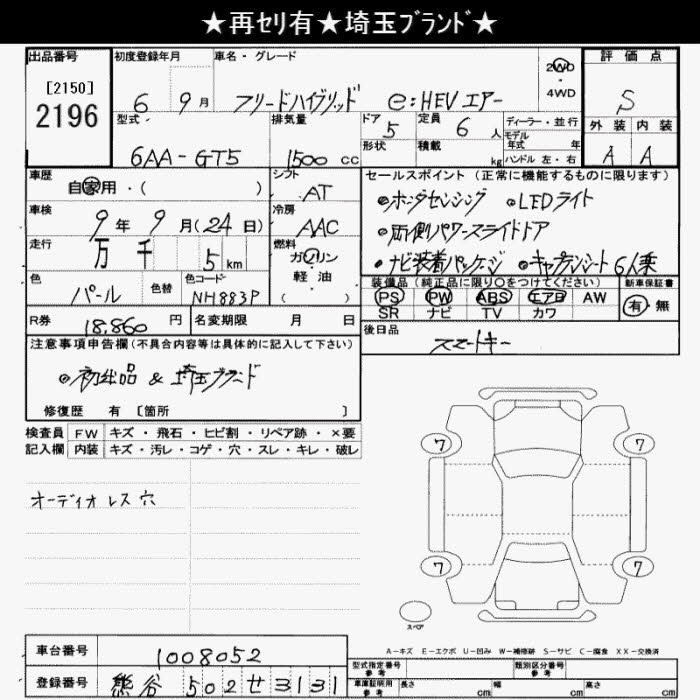 ★再セリ有★埼玉ブランド★
出品番号 初度登録年月 車名・グレード 評価点
[2150]
2196
6 9月 フリードハイブリッド e:HEVエアー 2WD・4WD S
型式 排気量 ドア 定員 ディーラー・並行 外装 内装
6AA-GT5 1500cc 5 6人 モデル年式 年 A A
形状 積載 kg ハンドル 左・右
車歴 シフト セールスポイント(正常に機能するものに限ります)
自家用・( ) AT ホンダセンシング LEDライト
車検 冷房
9年9月(24日) AAC 両側パワースライドドア
走行 燃料
万千5km ガソリン ナビ装着パッケージ キャプテンシート6人乗
色 色替 色コード 軽・油 装備品(純正品に限り○をつけてください) 新車保証書
パール NH883P ( ) PS PW ABS エアB AW 有・無
SR ナビ TV カワ
R券 18,860円 名変期限 月 日 後日品
注意事項申告欄(不具合内容等は具体的に記入して下さい) スマートキー
初出品&埼玉ブランド
修復歴 有 [箇所 ]
検査員 FW キズ・飛石・ヒビ割・リペア跡・×要
記入欄 内装 キズ・汚レ・コゲ・穴・スレ・キレ・破レ
7 7
オーディオレス穴
7 7
スペア
A-キズ E-エクボ U-凹み W-補修跡 S-サビ C-腐食 XX-交換済
車台番号 1008052 型式指定番号 参考 類別区分番号 参考
登録番号 熊谷502せ3131 車庫証明用 参考 長さ cm 幅 cm 高さ cm